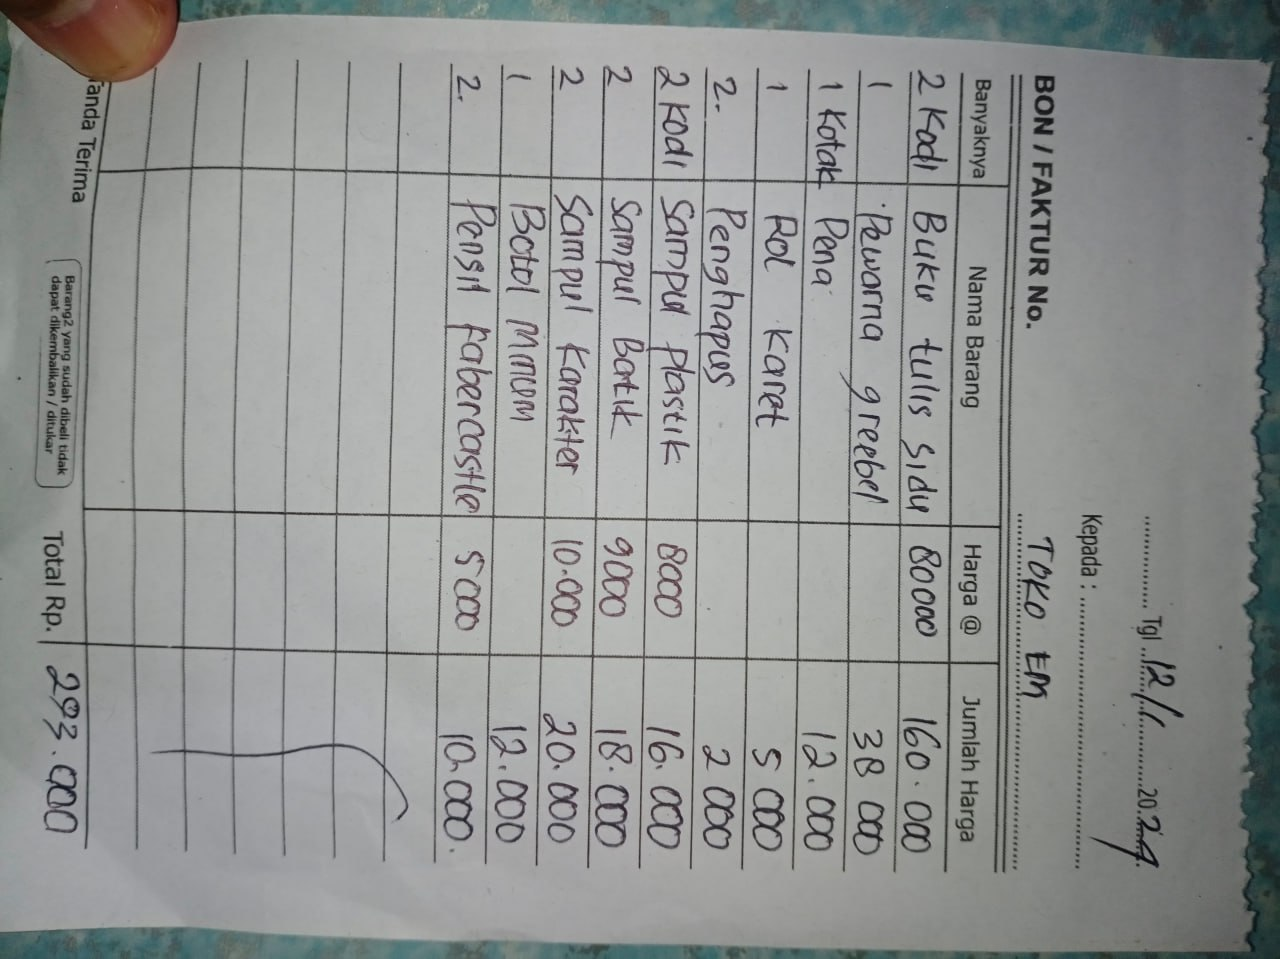 Tgl. 12/1 2024
Kepada :
BON / FAKTUR No. TOKO EM
Banyaknya Nama Barang Harga @ Jumlah Harga
2 Kodi Buku tulis Sidu 80000 160.000
1 Pewarna greebel 38 000
1 Kotak Pena 12.000
1 Rol Karet 5 000
2. Penghapus 2 000
2 Kodi Sampul plastik 8000 16.000
2 Sampul Batik 9000 18.000
2 Sampul Karakter 10.000 20.000
1 Botol Minum 12.000
2. Pensil Fabercastle 5 000 10.000.
Tanda Terima
Barang2 yang sudah dibeli tidak
dapat dikembalikan / ditukar
Total Rp. 293.000